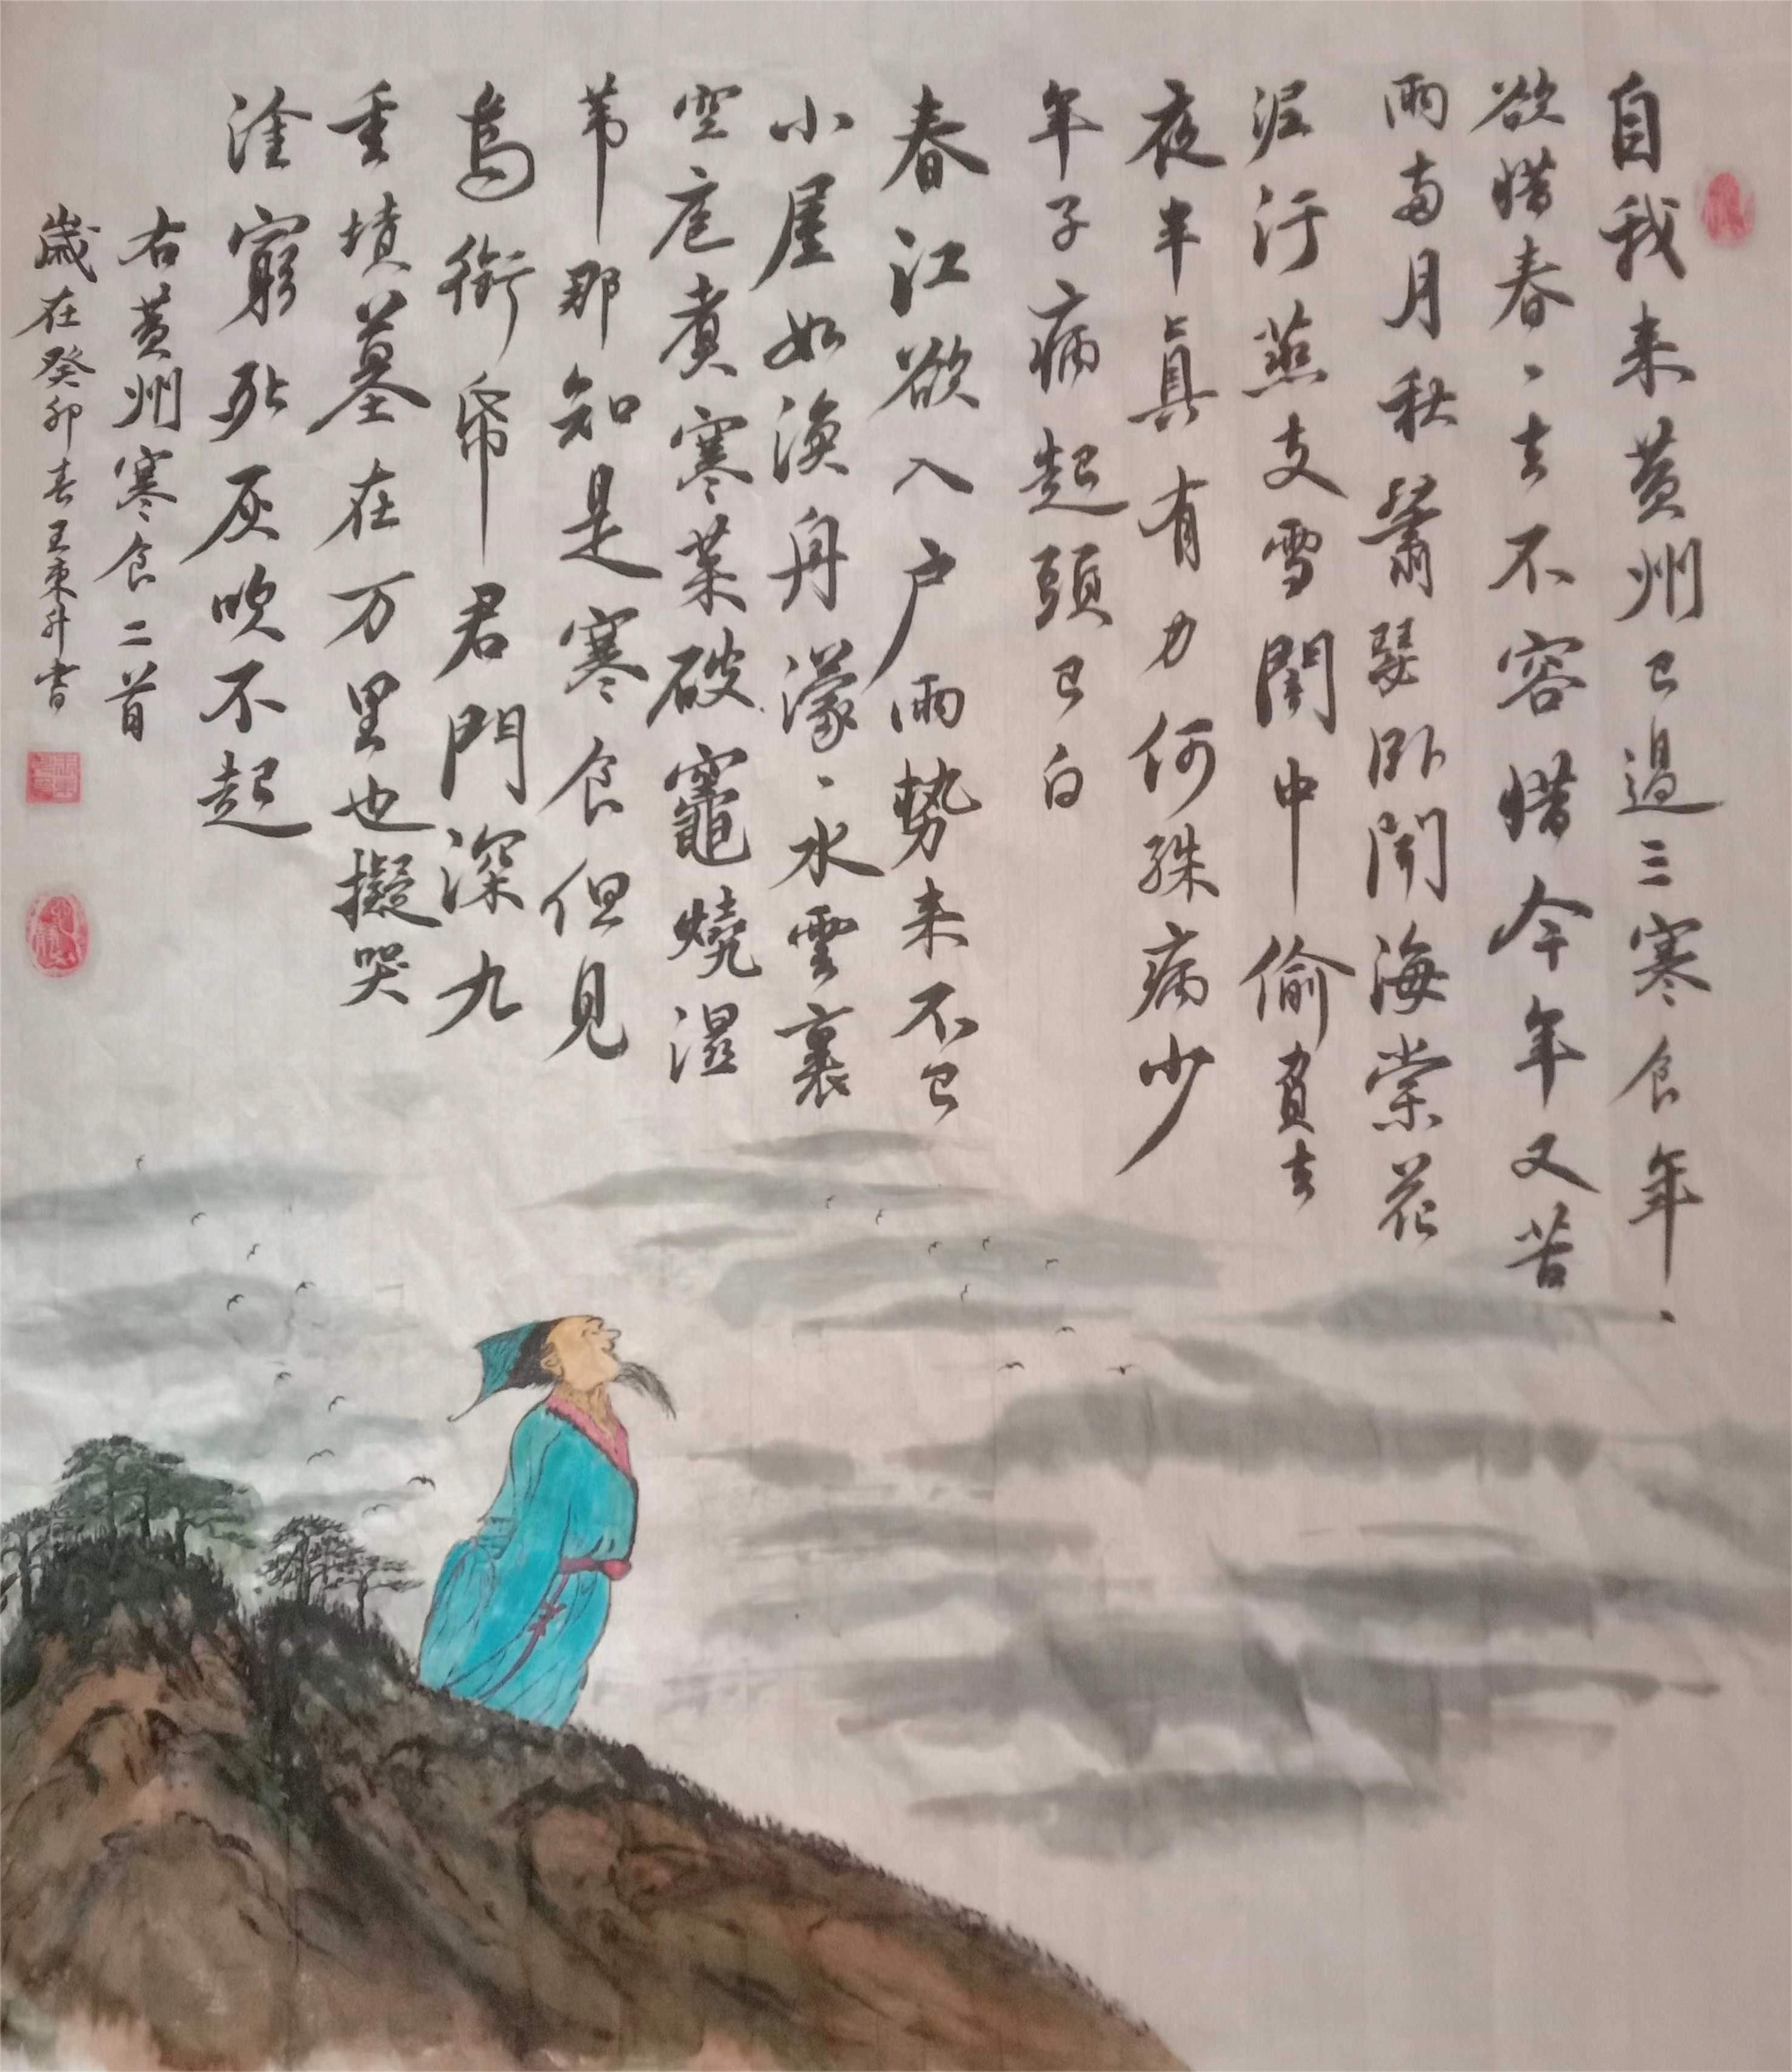 自我来黄州已過三寒食年、
欲惜春、去不容惜今年又苦
雨兩月秋蕭瑟卧聞海棠花
泥汙燕支雪闇中偷負去
夜半真有力何殊病少
年子病起頭已白
春江欲入户雨勢来不已
小屋如漁舟濛、水雲裏
空庖煮寒菜破竈燒濕
苇那知是寒食但見
烏銜帋君門深九
重墳墓在万里也擬哭
塗窮死灰吹不起
右黄州寒食二首
歲在癸卯春王東升書